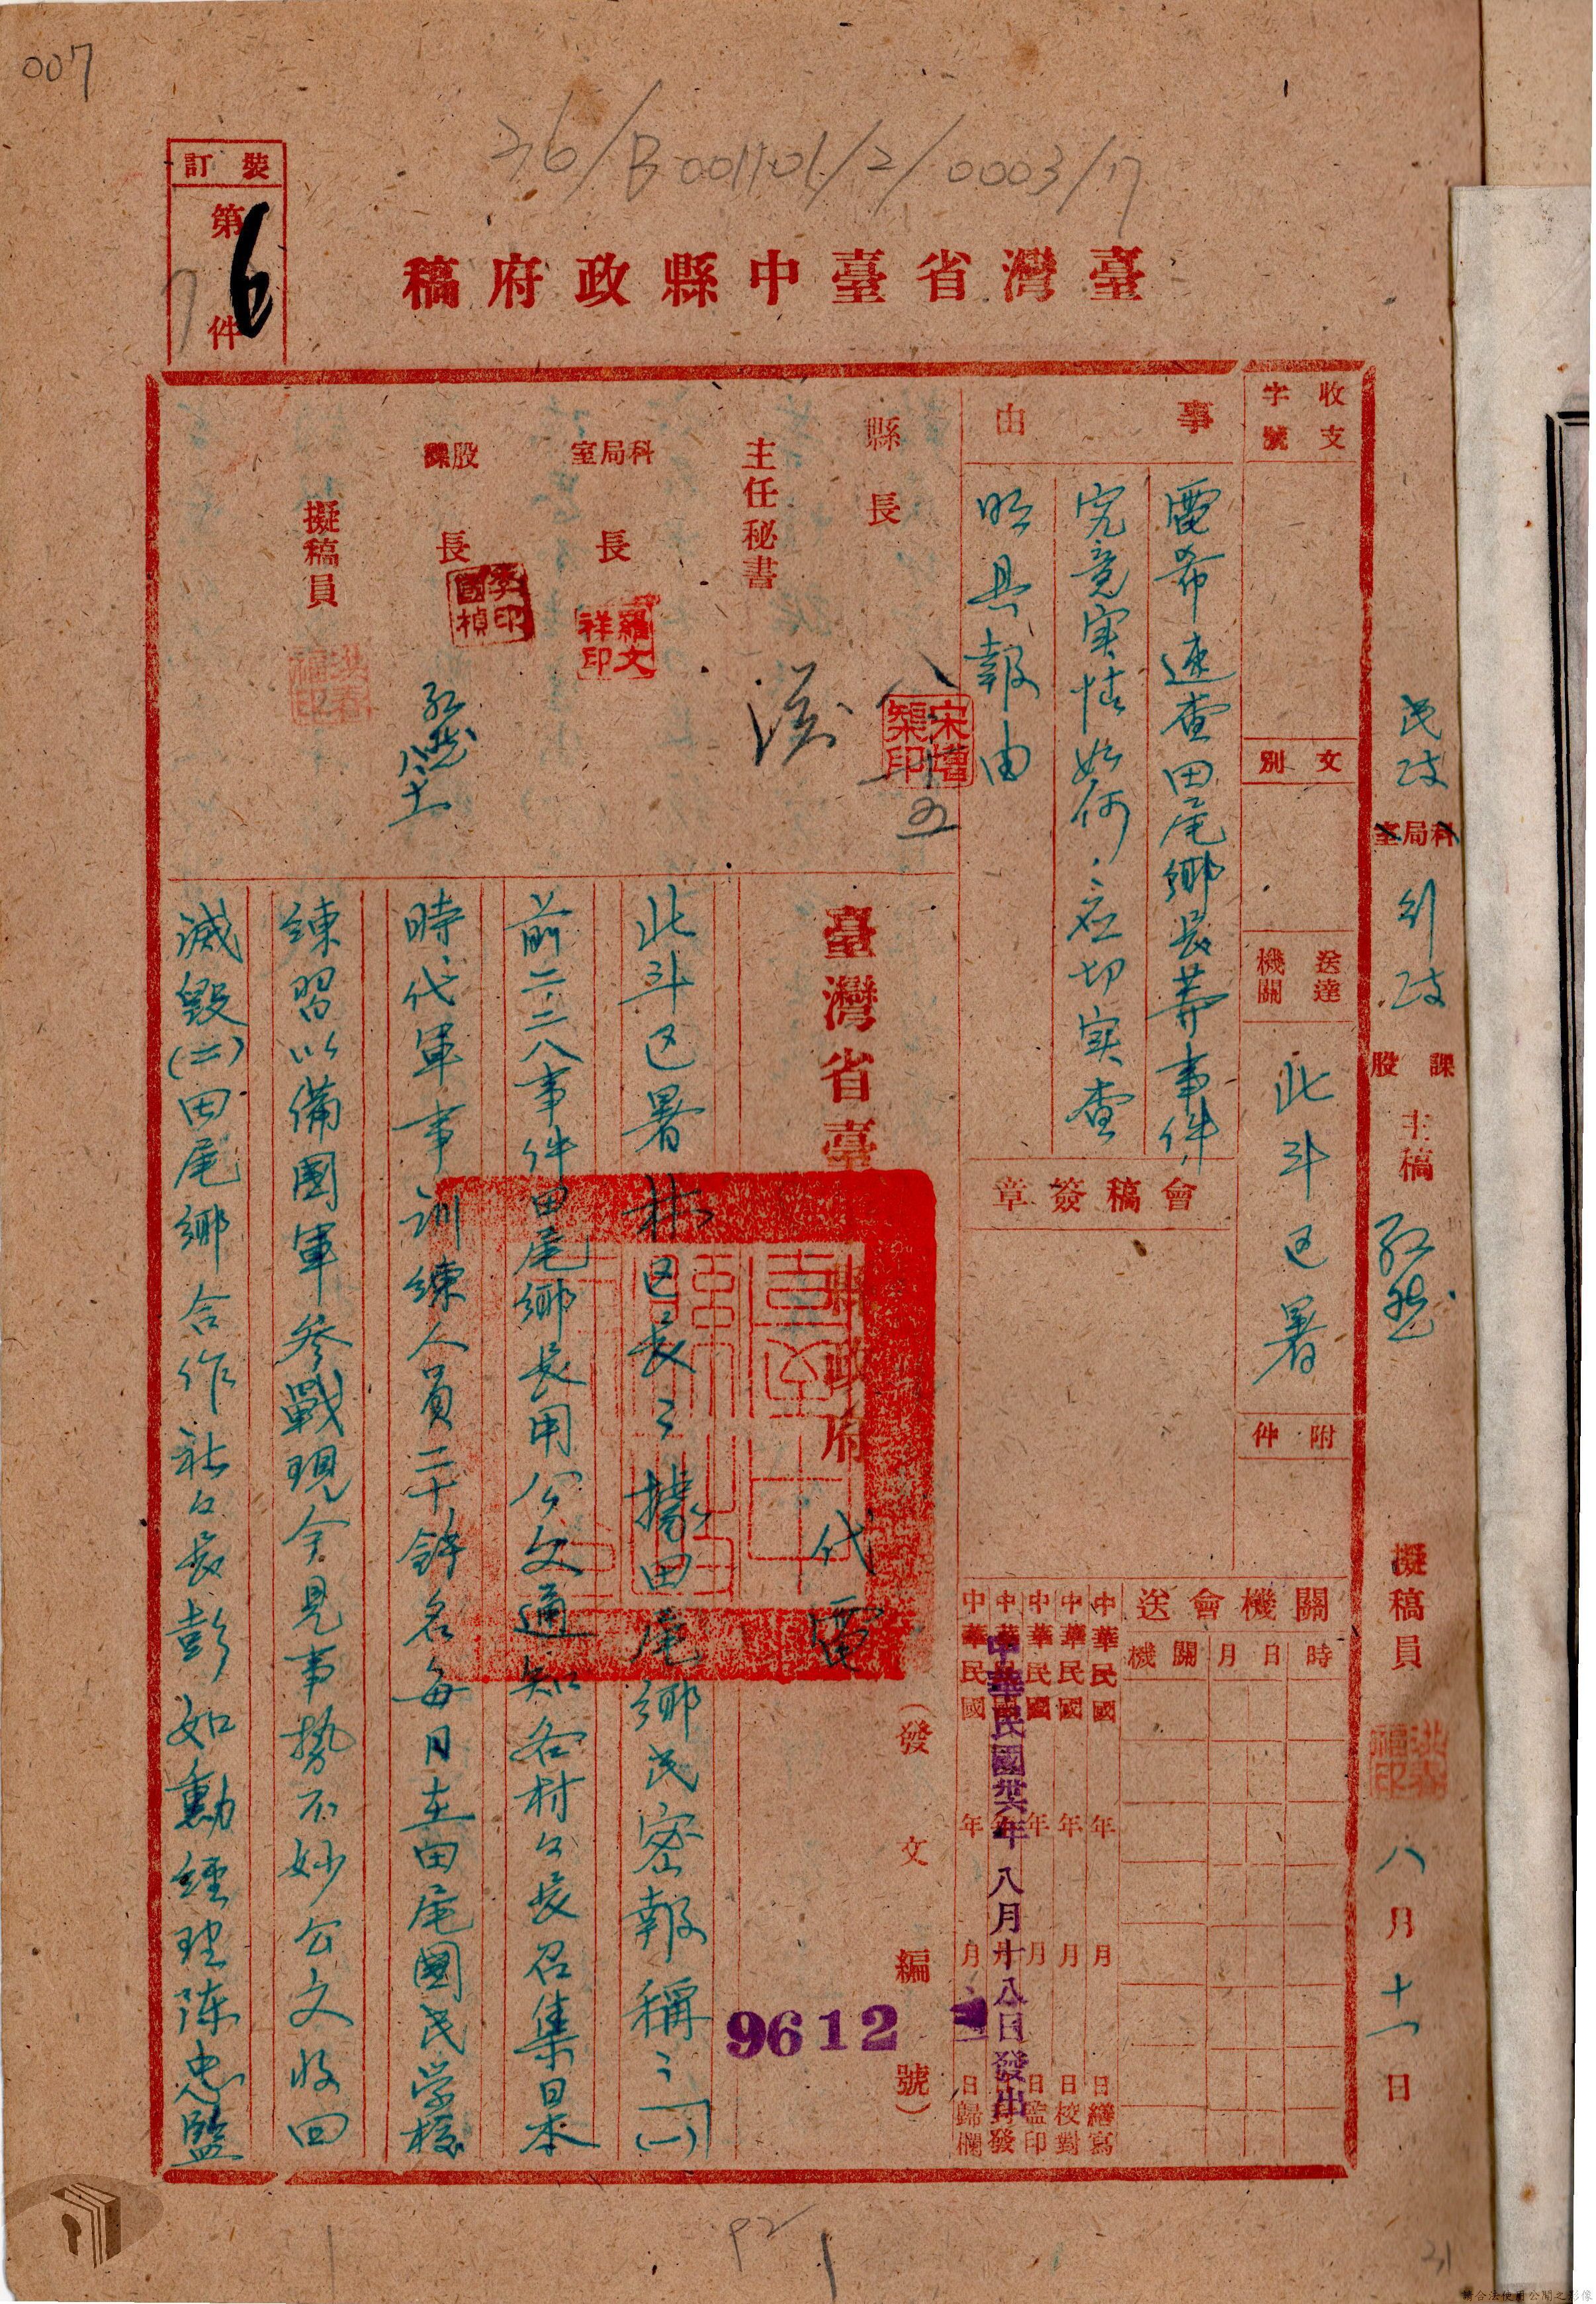 007
36/B001101/2/0003/17
裝訂
第6件
7
臺灣省臺中縣政府稿
民政科局室 行政課股 主稿
擬稿員 洪春福印 八月十一日
收支字號
文別
送達機關 北斗区署
附件
事由
電希速查田尾鄉長等事件
究竟実情如何應切実查
明具報由
會稿簽章
關機會送
機關 月日 時
中華民國 年 月 日繕寫
中華民國 年 月 日校對
中華民國 年 月 日監印
中華民國 年 月 日封發
中華民國 年 月 日歸檔
中華民國卅六年八月十八日發出
縣長 宋增榘印
主任秘書
科局室長 羅文祥印
股課長 李國楨印
擬稿員 洪春福印
臺灣省臺中縣政府 代電
(發文編號)
9612
北斗区署林区長:據田尾鄉民密報稱:「(一)
前二二八事件田尾鄉長用公文通知各村々長召集日本
時代軍事訓練人員二十餘名每日在田尾國民学校
練習以備國軍參戰現今見事勢不妙公文收回
滅毀(二)田尾鄉合作社々長彭如勳經理陳忠監
92
31
請合法使用公開之影像